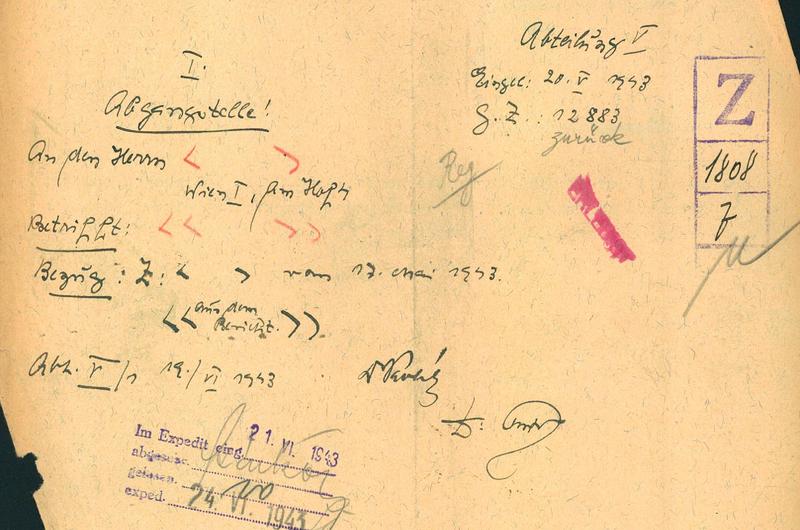 Abteilung V
Eingel: 20. V 1943
G. Z.: 12883
zurück
Z
1808
7
I.
Abgangstelle!
An den Herrn < >
Wien I, Am Hof 4
Reg
ERLEDIGT
Betrifft: << >>
Bezug: Z: < > vom 17. Mai 1943.
<< aus dem
Bericht. >>
Abt. V/1 19./VI 1943
Im Expedit eing. 21. VI. 1943
abgeschr.
gelesen
exped. 24. VI. 1943